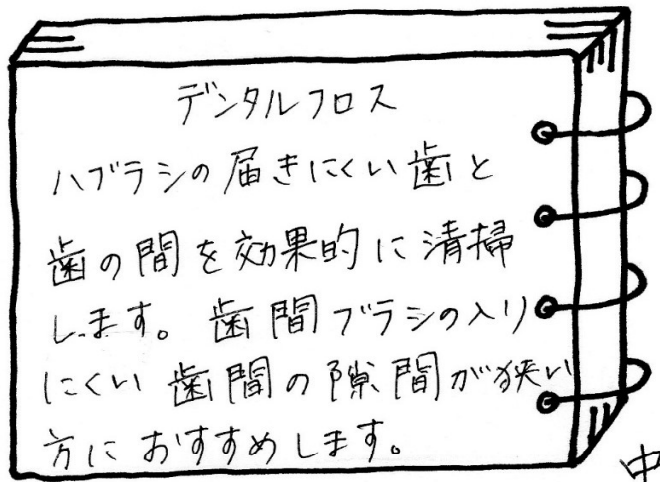 デンタルフロス
ハブラシの届きにくい歯と
歯の間を効果的に清掃
します。歯間ブラシの入り
にくい歯間の隙間が狭い
方におすすめします。
中